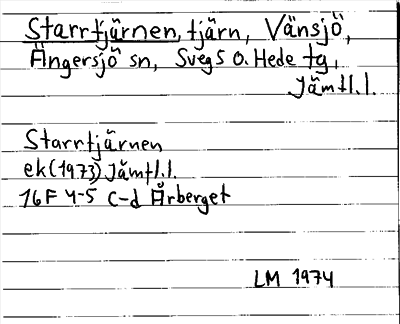 Starrtjärnen, tjärn, Vänsjö,
Ängersjö sn, Svegs o. Hede tg,
Jämtl.l.
Starrtjärnen
ek (1973) Jämtl.l.
16F 4-5 c-d Årberget
LM 1974